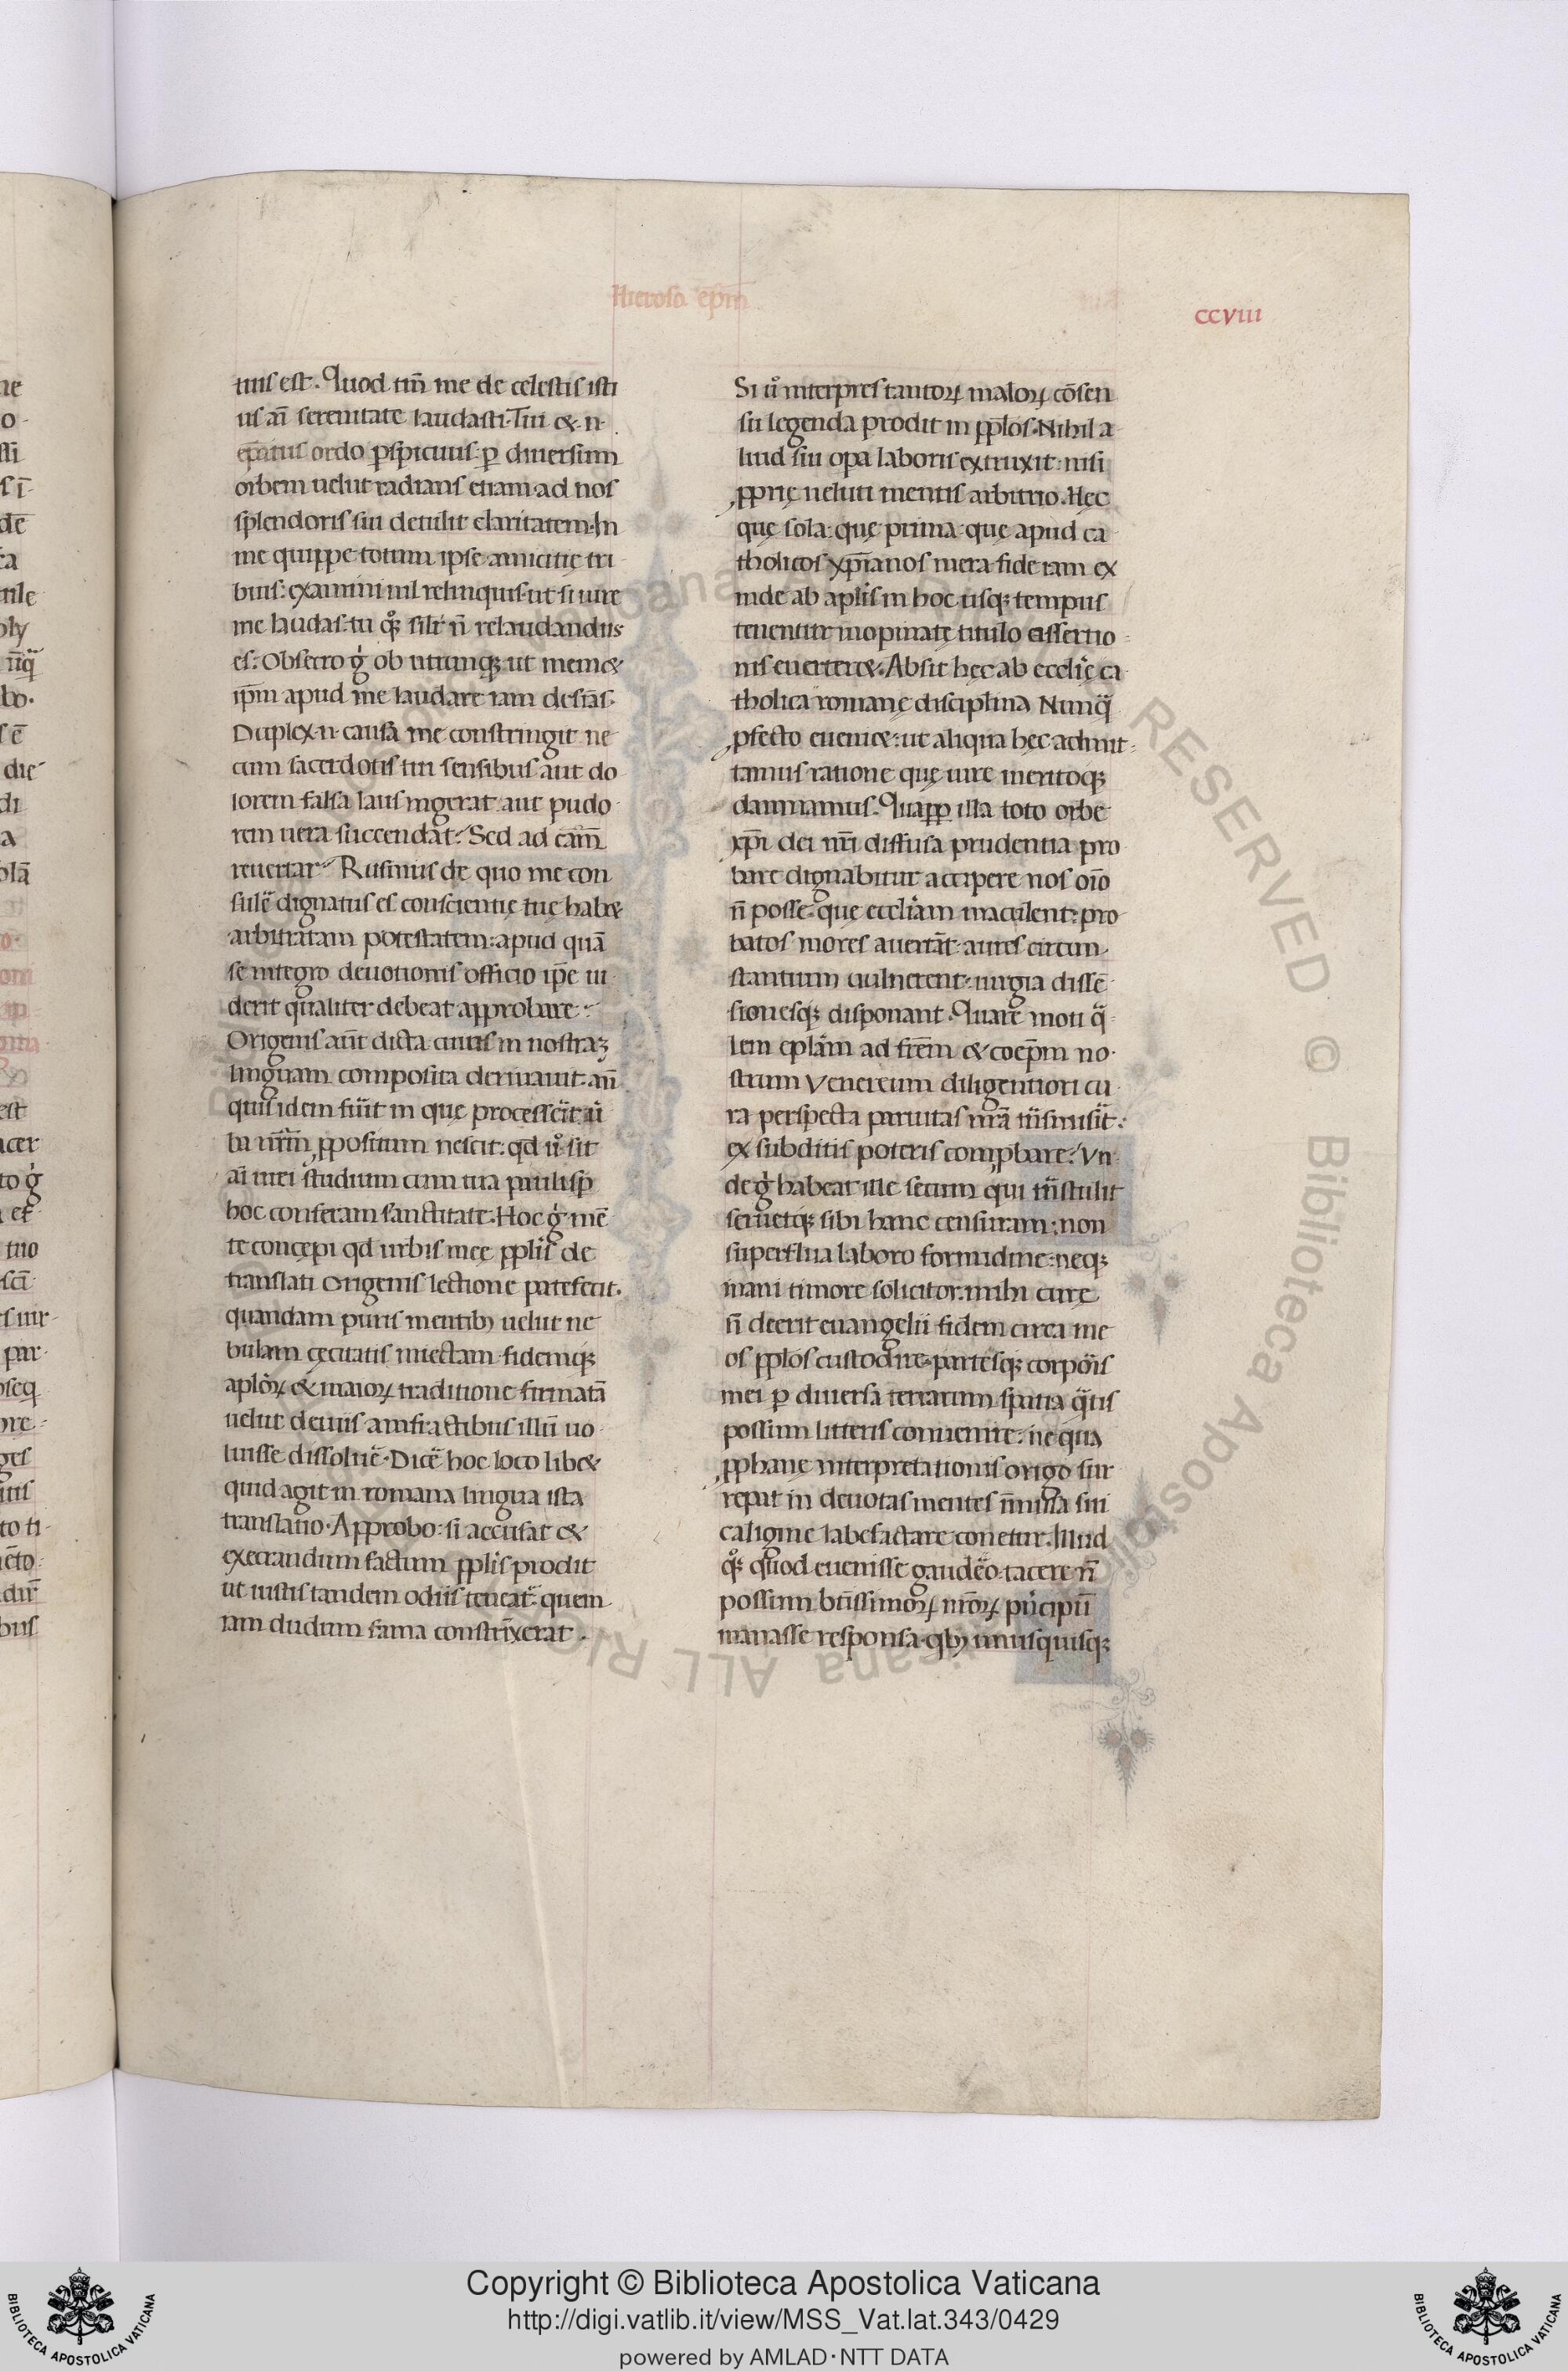 Hieroso ep̄m
ccviii
tius est. Quod tm̄ me de celestis isti
us aī serenitate laudasti. Tui & n
ep̄atus ordo ꝑspicuus: ꝑ diuersum
orbem uelut radians etiam ad nos
splendoris sui detulit claritatem. In
me quippe totum ipse amicitię tri
buis: examini nil relinquis. ut si iure
me laudas. tu qͦꝫ silr̄ n̄ relaudandus
es. Obsecro g̊ ob utrunqꝫ ut memet
ip̄m apud me laudare iam desīas.
Duplex n̄ causa me constringit ne
cum sacerdotis tui sensibus aut do
lorem falsa laus ingerat aut pudo
rem uera succendat. Sed ad cām
reuertar. Rufinus de quo me con
sulē dignatus es conscientię tuę habet
arbitratam potestatem: apud quā
se integro deuotionis officio ip̄e ui
derit qualiter debeat approbare.
Origenis aūt dicta cuius in nostraꝫ
linguam composita deriuauit. an̄
quis idem fuīt in que processeīt ū
ba nr̄m ꝓpositum nescit: qd ů sit
aī mei studium cum tua paulisꝑ
hoc conferam sanctitate. Hoc g̊ mē
te concepi qd urbis meę ppl̄is de
translati Origenis lectione patefecit.
quandam puris mentibꝫ uelut ne
bulam cęcitatis iniectam fidemqꝫ
aplōꝝ & maioꝝ traditione firmatā
uelut deuiis amfractibus illū uo
luisse dissoluē. Dicē hoc loco libet
quid agit in romana lingua ista
translatio. Approbo: si accusat &
execrandum factum ppl̄is prodit
ut iustis tandem odiis teneat̄ quem
iam dudum fama constrīxerat.
Si ů interpres tantoꝝ maloꝝ cōsen
su legenda prodit in ppl̄os. Nihil a
liud sui opa laboris extruxit: nisi
ꝓprię ueluti mentis arbitrio. Hęc
quę sola: quę prima: quę apud ca
tholicos xp̄ianos mera fide iam ex
inde ab apl̄is in hoc usqꝫ tempus
tenentur inopinatę titulo assertio
nis euerteret. Absit hęc ab eccl̄ię ca
tholica romanę disciplina. Nunq̄
ꝓfecto eueniet: ut aliqua hęc admit
tamus ratione quę iure meritoqꝫ
damnamus. Quapp illa toto orbe
xp̄i dei nr̄i diffusa prudentia pro
bare dignabitur accipere nos oīo
n̄ posse: quę eccl̄iam maculent: pro
batos mores auertāt: aures circum
stantium uulnerent: iurgia dissē
sionesqꝫ disponant. Quare moti q̄
lem epl̄am ad fr̄em & coep̄m no
strum Venereum diligentiori cu
ra perspecta paruitas nr̄a trāsmisit:
ex subditis poteris comꝓbare. Vn
de g̊ habeat ille secum qui trāstulit
seruetqꝫ sibi hanc censuram: non
superflua laboro formidine: neqꝫ
inani timore solicitor. mihi curę
n̄ deerit euangelii fidem circa me
os ppl̄os custodire: partesqꝫ corpōis
mei ꝑ diuersa terrarum spatia q̄tis
possum litteris conuenire: ne qua
ꝓphanę interpretationis origo sur
repat in deuotas mentes īmissa sui
caligine labefactare conetur. Illud
qͦꝫ quod euenisse gaudēo tacere n̄
possum btīssimoꝝ nr̄oꝝ pⁱncipū
manasse responsa. qbꝫ unusquisqꝫ
RESERVED © Biblioteca Apostolica Vaticana ALL RIGHTS
Copyright © Biblioteca Apostolica Vaticana
http://digi.vatlib.it/view/MSS_Vat.lat.343/0429
powered by AMLAD·NTT DATA
BIBLIOTECA APOSTOLICA VATICANA
BIBLIOTECA APOSTOLICA VATICANA